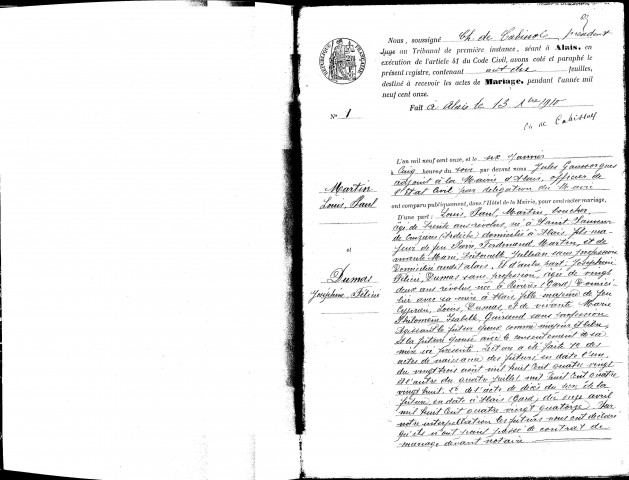 Nous, soussigné Ch. de Cabissole président
Juge au Tribunal de première instance, séant à Alais, en
exécution de l'article 41 du Code Civil, avons coté et paraphé le
présent registre, contenant feuilles,
destiné à recevoir les actes de Mariage, pendant l'année mil
neuf cent onze.
Fait à Alais le 13 Xbre 1910
RÉPUBLIQUE FRANÇAISE
N° 1
L'an mil neuf cent onze, et le six Janvier
à Cinq heures du soir par devant nous Jules Gaussorgues
adjoint à la Mairie d'Alais, officier de
l'Etat Civil par délégation du Maire
ont comparu publiquement, dans l'Hôtel de la Mairie, pour contracter mariage,
Martin
Louis, Paul
et
Dumas
Joséphine Félicie
D'une part: Louis, Paul, Martin, boucher,
âgé de trente ans révolus, né à Saint
de (Ardèche) domicilié à Alais, fils ma-
jeur de feu Pierre, Ferdinand, Martin, et de
vivante Marie, Antoinette, Jullian sans profession
Domiciliée audit Alais. Et d'autre part: Joséphine
Félicie, Dumas sans profession, âgée de vingt
deux ans révolus née à Rivières (Gard) domici-
liée avec sa mère à Alais, fille majeure de feu
Cyprien, Louis, Dumas, et de vivante Marie
Philomène Isabelle, Guiraud sans profession
Agissant le futur époux comme majeur et libre
et la future épouse avec le consentement de sa
mère ici présente. Lecture a été faite 1° des
actes de naissance des futurs en date l'un
du vingt trois août mil huit cent quatre vingt
et l'autre du quatre juillet mil huit cent quatre
vingt huit. 2° de l'acte de décès du père de la
future en date à Alais (Gard) du seize avril
mil huit cent quatre vingt quatorze. Sur
notre interpellation les futurs nous ont déclaré
qu'ils n'ont point passé de contrat de
mariage devant notaire